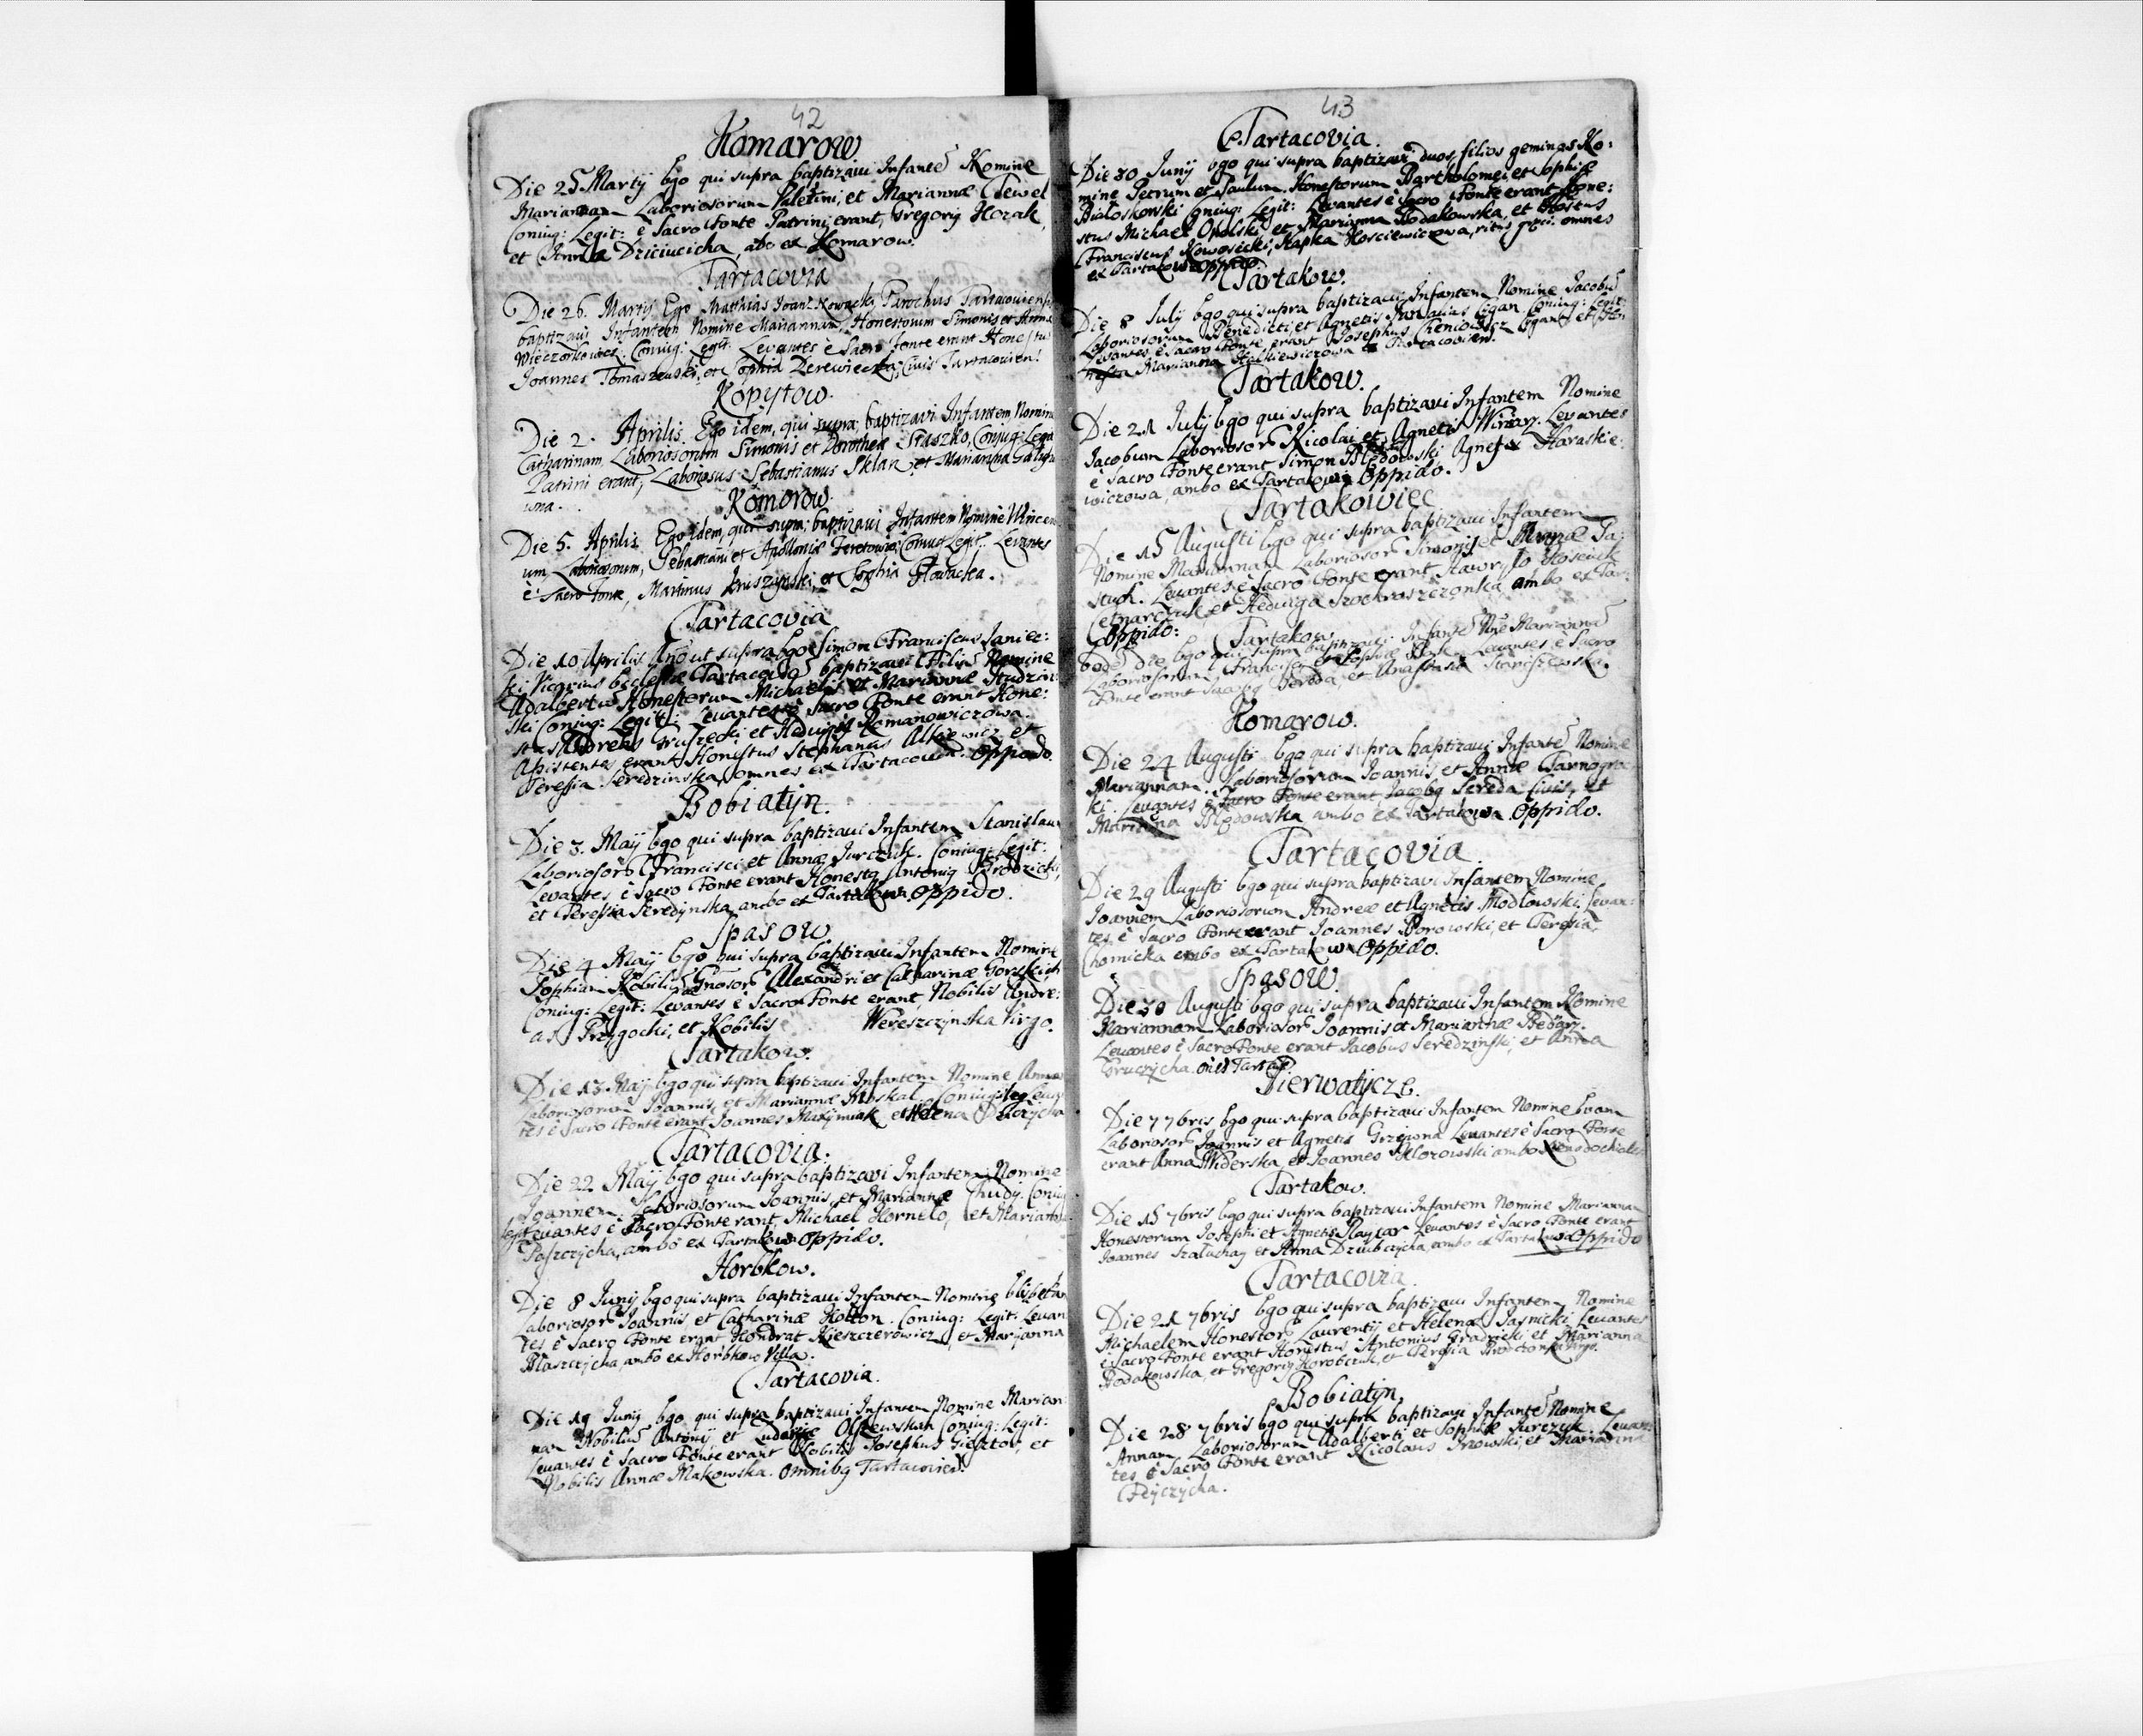 42
Komarow
Die 25 Martij Ego qui supra baptizaui Infantē Nomine
Mariannam Laboriosorum Valetini, et Mariannæ Tewel
Coniug: Legit: è Sacro Fonte Patrini erant, Gregorig Hozak,
et Anna Driciucicha, abo ex Komarow.
Tartacovia
Die 26. Martij Ego Matthias Joan: Nowacki, Parochus Tartacoviensis
baptizavi Infantem Nomine Mariannam, Honestorum Simonis et Annæ
Wieczorkowicz. Coniug: Legit. Levantes è Sacro Fonte erant Honestus
Joannes Tomaszewski, et Sophia Derewiecka; Civis Tartacovien:
Kopytow.
Die 2. Aprilis. Ego idem, qui supra; baptizavi Infantem, Nomine
Catharinam, Laboriosorum Simonis et Dorotheæ Staszko, Conjug: Legit
Patrini erant; Laboriosus Sebastianus Sklan, et Marianna
wna.
Komorow.
Die 5. Aprilis. Ego idem, qui supra; baptizaui Infantem Nomine Vincen
um, Laboriosorum, Sebastiani et Apolloniæ Coniug Legit. Levantes
è Sacro Fonte, Martinus et Sophia Głowacka.
Tartacovia
Die 10 Aprilis Año ut supra Ego Simon Franciscus Janiec:
ki Vicarius Ecclesiæ Tartacovien baptizaui Filiū Nomine
Adalbertū Honestorum Michaelis et Mariannæ Studzin
ski Coniug: Legit: Levantes è Sacro Fonte erant Hone:
stus Andreas Gruszecki et Heduigis Romanowiczowa.
Assistentes erant Honestus Stephanus et
Teressia Seredzinska, omnes ex Tartacovien. Oppido.
Bobiatyn.
Die 3. Maij Ego qui supra baptizaui Infantem Stanislaum
Laboriosorū Francisci et Annæ Jurczuk. Coniug: Legit:
Levantes è Sacro Fonte erant Honestg Antonig Brodzicki,
et Teressia Seredynska, ambo ex Tartakow oppido.
Spasow
Die 4 Maij Ego qui supra baptizaui Infantem Nomine
Sophiam Nobiliū Gnosorū Alexandri et Catharinæ Gorskich
Coniug: Legit: Levantes è Sacro Fonte erant, Nobilis Andre:
as Przygocki, et Nobilis Wereszczynska Virgo.
Tartakow.
Die 13 Maij Ego qui supra baptizaui Infantem Nomine Annam
Laboriosorum Joannis, et Mariannæ Moskal. Coniug: leg Leua
tes è Sacro Fonte erant Joannes Maxymiak et Helena
Tartacovia.
Die 22 Maij Ego qui supra baptizavi Infantem Nomine
Joannem. Laboriosorum Joannis, et Mariannæ Chudy. Coniug
legit Levantes è Sacro Fonte rant, Michael Hornelo, et Marianna
Paszczycha, ambo ex Tartakow oppido.
Horbkow.
Die 8 Junij Ego qui supra baptizaui Infantem Nomine Elisbetam
Laboriosorū Joannis, et Catharinæ Holton. Coniug: Legit: Levan
tes è Sacro Fonte erant Kondrat Kieszczerowicz, et Maryanna
Blaszczycha, ambo ex Horbkow Villa.
Tartacovia.
Die 19 Junij Ego qui supra baptizaui Infantem Nomine Marian
nam Nobiliū Antonij et Ludovicæ Olszewskich Coniug: Legit:
Levantes è Sacro Fonte erant Nobilis Josephus Giesztor, et
Nobilis Anna Makowska. omnibg Tartacovien:
43
Tartacovia.
Die 30 Junij Ego qui supra baptizavi duos filios geminos No:
mine Petrum et Paulum. Honestorum Bartholomei, et Sophiæ
Białoskowski Coniug: Legit: Levantes è Sacro Fonte erant Hone:
stus Michael Opolski et Marianna Rodakowska, et Hostus
Franciscus Nowosiecki, Hapka Kosciewiczowa, ritus græci. omnes
ex Tartakow oppido.
Tartakow.
Die 8 July Ego qui supra baptizaui Infantem Nomine Jacobū
Laboriosorum Benedicti, et Agnetis Cigan Coniug: Legit:
Levantes è Sacro Fonte erant Josephus Cheniowicz et Hon
nesta Marianna Halkiewiczowa Tartacovien.
Tartakow.
Die 21 July Ego qui supra baptizaui Infantem Nomine
Jacobum Laboriosorū Nicolai et Agnetis Winiary. Levantes
è Sacro Fonte erant Simon Błędowski Agnes Haraskie:
wiczowa, ambo ex Tartakow oppido.
Tartakowiec
Die 15 Augusti Ego qui supra baptizaui Infantem
Nomine Mariannam Laboriosorū Simonis et Annæ Pa:
stuch. Levantes è Sacro Fonte erant Hawryło
et Heduiga ambo ex Tar:
Oppido:
Tartakow
Eodē die Ego qui supra baptizaui Infantē Nñe Mariannā
Laboriosorum Francisci et Sophiæ Levantes è Sacro
Fonte erant Jacobg Sereda, et Anastasia Staniszewska.
Komarow.
Die 24 Augusti Ego qui supra baptizaui Infantē Nomine
Mariannam. Laboriosorum Joannis, et Annæ Tarnogra
ki. Levantes è Sacro Fonte erant, Jacobg Sereda Civis, et
Marianna Błędowska ambo ex Tartakow Oppido.
Tartacovia.
Die 29 Augusti Ego qui supra baptizavi Infantem Nomine
Joannem Laboriosorum Andreæ et Agnetis Modlowski. Levan:
tes è Sacro Fonte erant Joannes Borowski, et Teresia
Chomicka ambo ex Tartakow Oppido.
Spasow.
Die 30 Augusti Ego qui supra baptizaui Infantem Nomine
Mariannam Laboriosorū Joannis et Mariannæ Bednarz.
Levantes è Sacro Fonte erant Jacobus Seredzinski, et Anna
Gruczycha.
Pierwatycze.
Die 7 7bris Ego qui supra baptizaui Infantem Nomine Evam
Laboriosorū Joannis et Agnetis Grzegona Levantes è Sacro Fonte
erant Anna Widerska, et Joannes Morowski ambo
Tartakow.
Die 15 7bris Ego qui supra baptizaui Infantem Nomine Mariannam
Honestorum Josephi et Agnetis Raytar Levantes è Sacro Fonte erant
Joannes Szaluchay et Anna Dziubczycha, ambo ex Tartakow Oppido
Tartacovia.
Die 21 7bris Ego qui supra baptizaui Infantem Nomine
Michaelem Honestorū Laurentij et Helenæ Jasnicki, Levantes
è Sacro Fonte erant Honestus Antonius Grabicki et Marianna
Rodakowska, et Gregorij Horobczuk, et Teresia Virgo.
Bobiatyn.
Die 28 7bris Ego qui supra baptizaui Infantē Nomine
Annam Laboriosorum Adalberti et Sophiæ Jurczyk. Levan:
tes è Sacro Fonte erant Nicolaus et Marianna
Deyczycha.